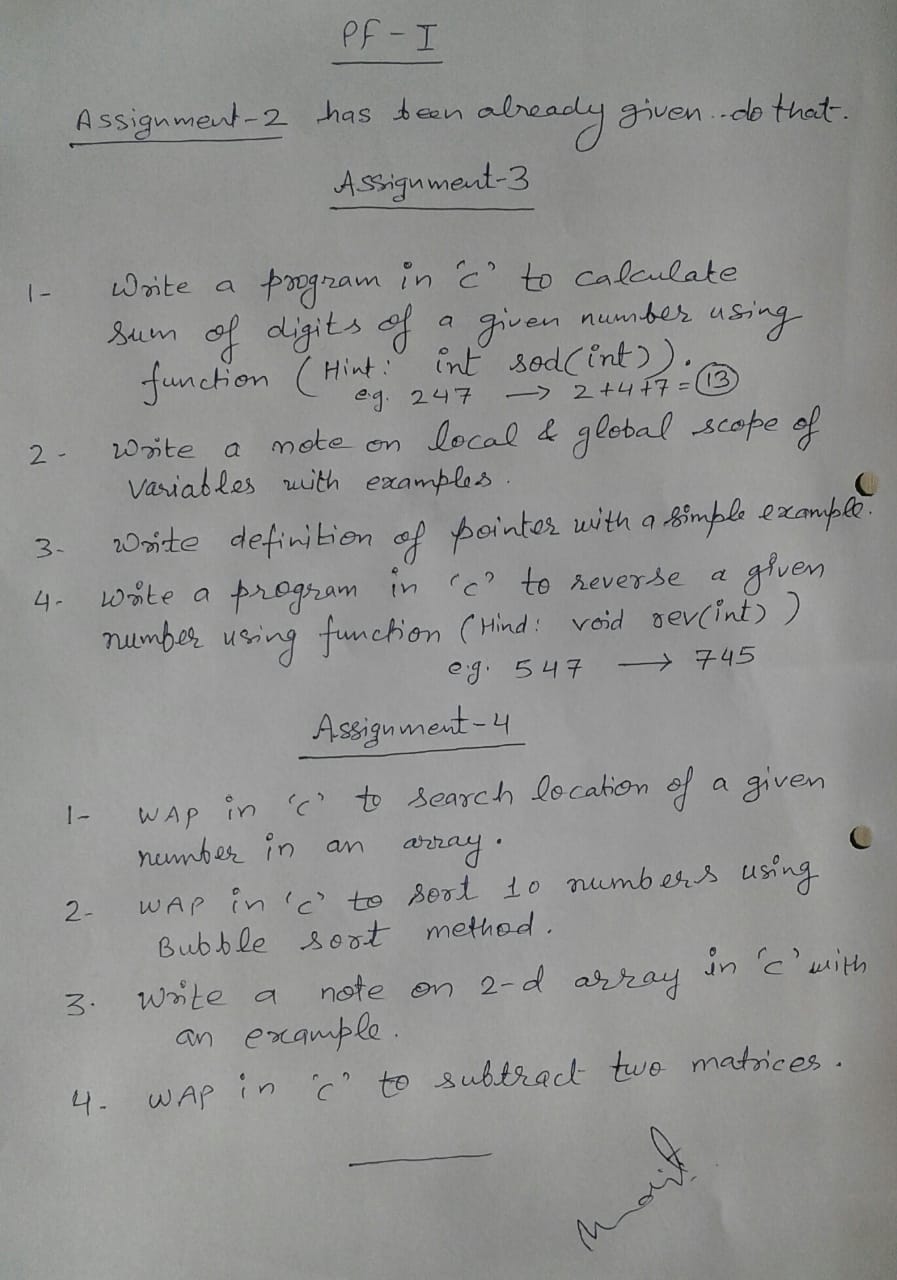 PF - I
Assignment-2 has been already given..do that.
Assignment-3
1- Write a program in 'c' to calculate
sum of digits of a given number using
function (Hint: int sod(int)).
e.g. 247 → 2+4+7=13
2- Write a note on local & global scope of
variables with examples.
3- Write definition of pointer with a simple example.
4- Write a program in 'c' to reverse a given
number using function (Hind: void rev(int))
e.g. 547 → 745
Assignment-4
1- WAP in 'c' to search location of a given
number in an array.
2- WAP in 'c' to sort 10 numbers using
Bubble sort method.
3. Write a note on 2-d array in 'c' with
an example.
4- WAP in 'c' to subtract two matrices.